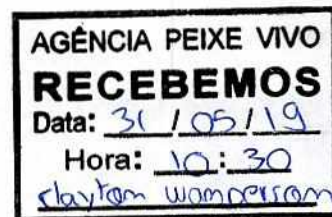 AGÊNCIA PEIXE VIVO
RECEBEMOS
Data: 31 / 05 / 19
Hora: 10 : 30
clayton wanderson